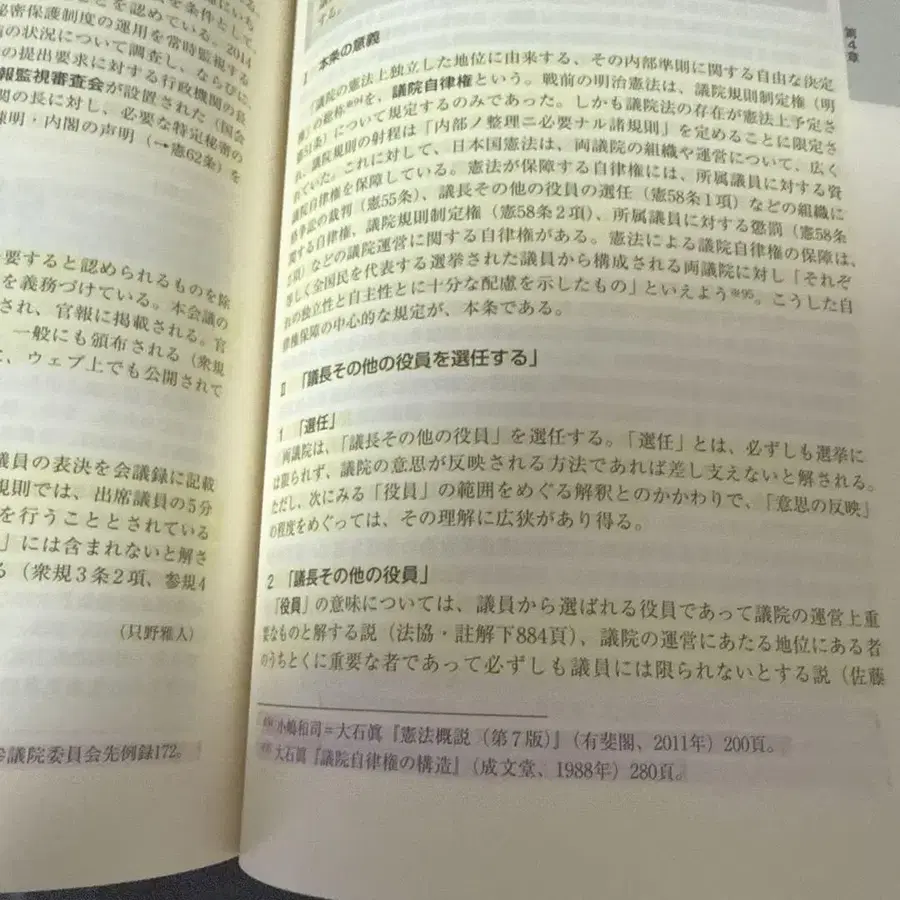 を条件として、
とを認めている。2014
秘密保護制度の運用を常時監視する
の状況について調査し、ならびに、
の提出要求に対する行政機関の長
報監視審査会が設置された（国会
関の長に対し、必要な特定秘密の
陳明・内閣の声明（→憲62条）を
要すると認められるものを除
を義務づけている。本会議の
され、官報に掲載される。官
一般にも頒布される（衆規
、ウェブ上でも公開されて
議員の表決を会議録に記載
規則では、出席議員の5分
を行うこととされている
」には含まれないと解さ
る（衆規3条2項、参規4
（只野雅人）
参議院委員会先例録172。
第4章
する。
I 本条の意義
「議院の憲法上独立した地位に由来する、その内部準則に関する自由な決定
権」の総称※94を、議院自律権という。戦前の明治憲法は、議院規則制定権（明
憲51条）について規定するのみであった。しかも議院法の存在が憲法上予定さ
れ、議院規則の射程は「内部ノ整理ニ必要ナル諸規則」を定めることに限定さ
れていた。これに対して、日本国憲法は、両議院の組織や運営について、広く
議院自律権を保障している。憲法が保障する自律権には、所属議員に対する資
格争訟の裁判（憲55条）、議長その他の役員の選任（憲58条1項）などの組織に
関する自律権、議院規則制定権（憲58条2項）、所属議員に対する懲罰（憲58条
2項）などの議院運営に関する自律権がある。憲法による議院自律権の保障は、
等しく全国民を代表する選挙された議員から構成される両議院に対し「それぞ
れの独立性と自主性とに十分な配慮を示したもの」といえよう※95。こうした自
律権保障の中心的な規定が、本条である。
II 「議長その他の役員を選任する」
1 「選任」
両議院は、「議長その他の役員」を選任する。「選任」とは、必ずしも選挙に
は限られず、議院の意思が反映される方法であれば差し支えないと解される。
ただし、次にみる「役員」の範囲をめぐる解釈とのかかわりで、「意思の反映」
の程度をめぐっては、その理解に広狭があり得る。
2 「議長その他の役員」
「役員」の意味については、議員から選ばれる役員であって議院の運営上重
要なものと解する説（法協・註解下884頁）、議院の運営にあたる地位にある者
のうちとくに重要な者であって必ずしも議員には限られないとする説（佐藤
※94 小嶋和司＝大石眞『憲法概説（第7版）』（有斐閣、2011年）200頁。
※95 大石眞『議院自律権の構造』（成文堂、1988年）280頁。